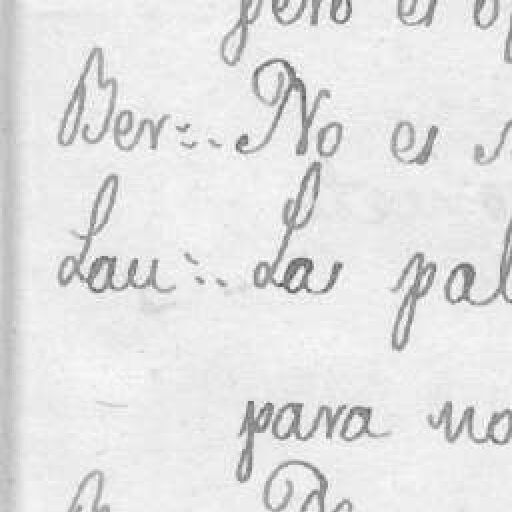 pero es
Ber=.. No es
Lau:.. Las pal
para no